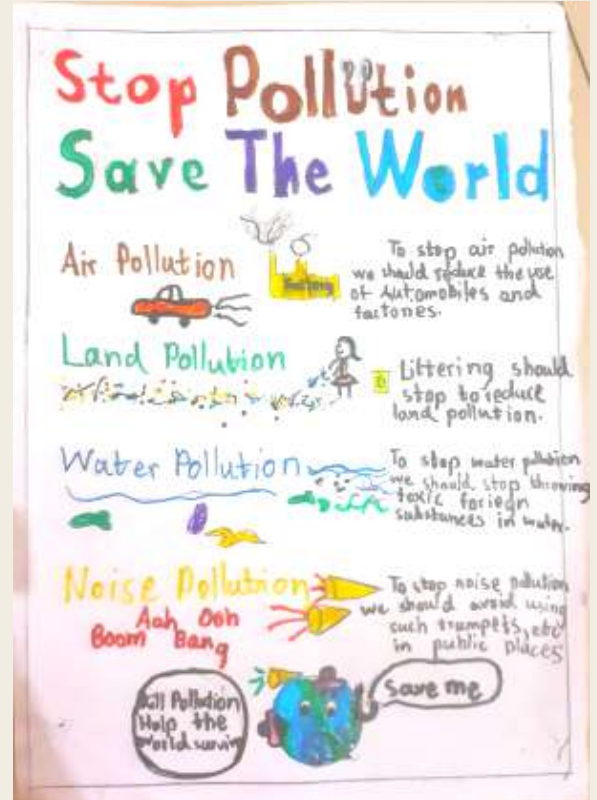 Stop Pollution
Save The World
Air Pollution
Factory
To stop air pollution
we should reduce the use
of Automobiles and
factories.
Land Pollution
Littering should
stop to reduce
land pollution.
Water Pollution
To stop water pollution
we should stop throwing
toxic foriegn
substances in water.
Noise Pollution
Aah Ooh
Boom Bang
To stop noise pollution
we should avoid using
such trumpets, etc
in public places
Kill Pollution
Help the
World
Save me